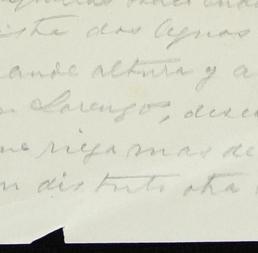 ista dos Aguas
ande altura y a
n Lorenzo, desc
ue riega mas de
n distrito otra